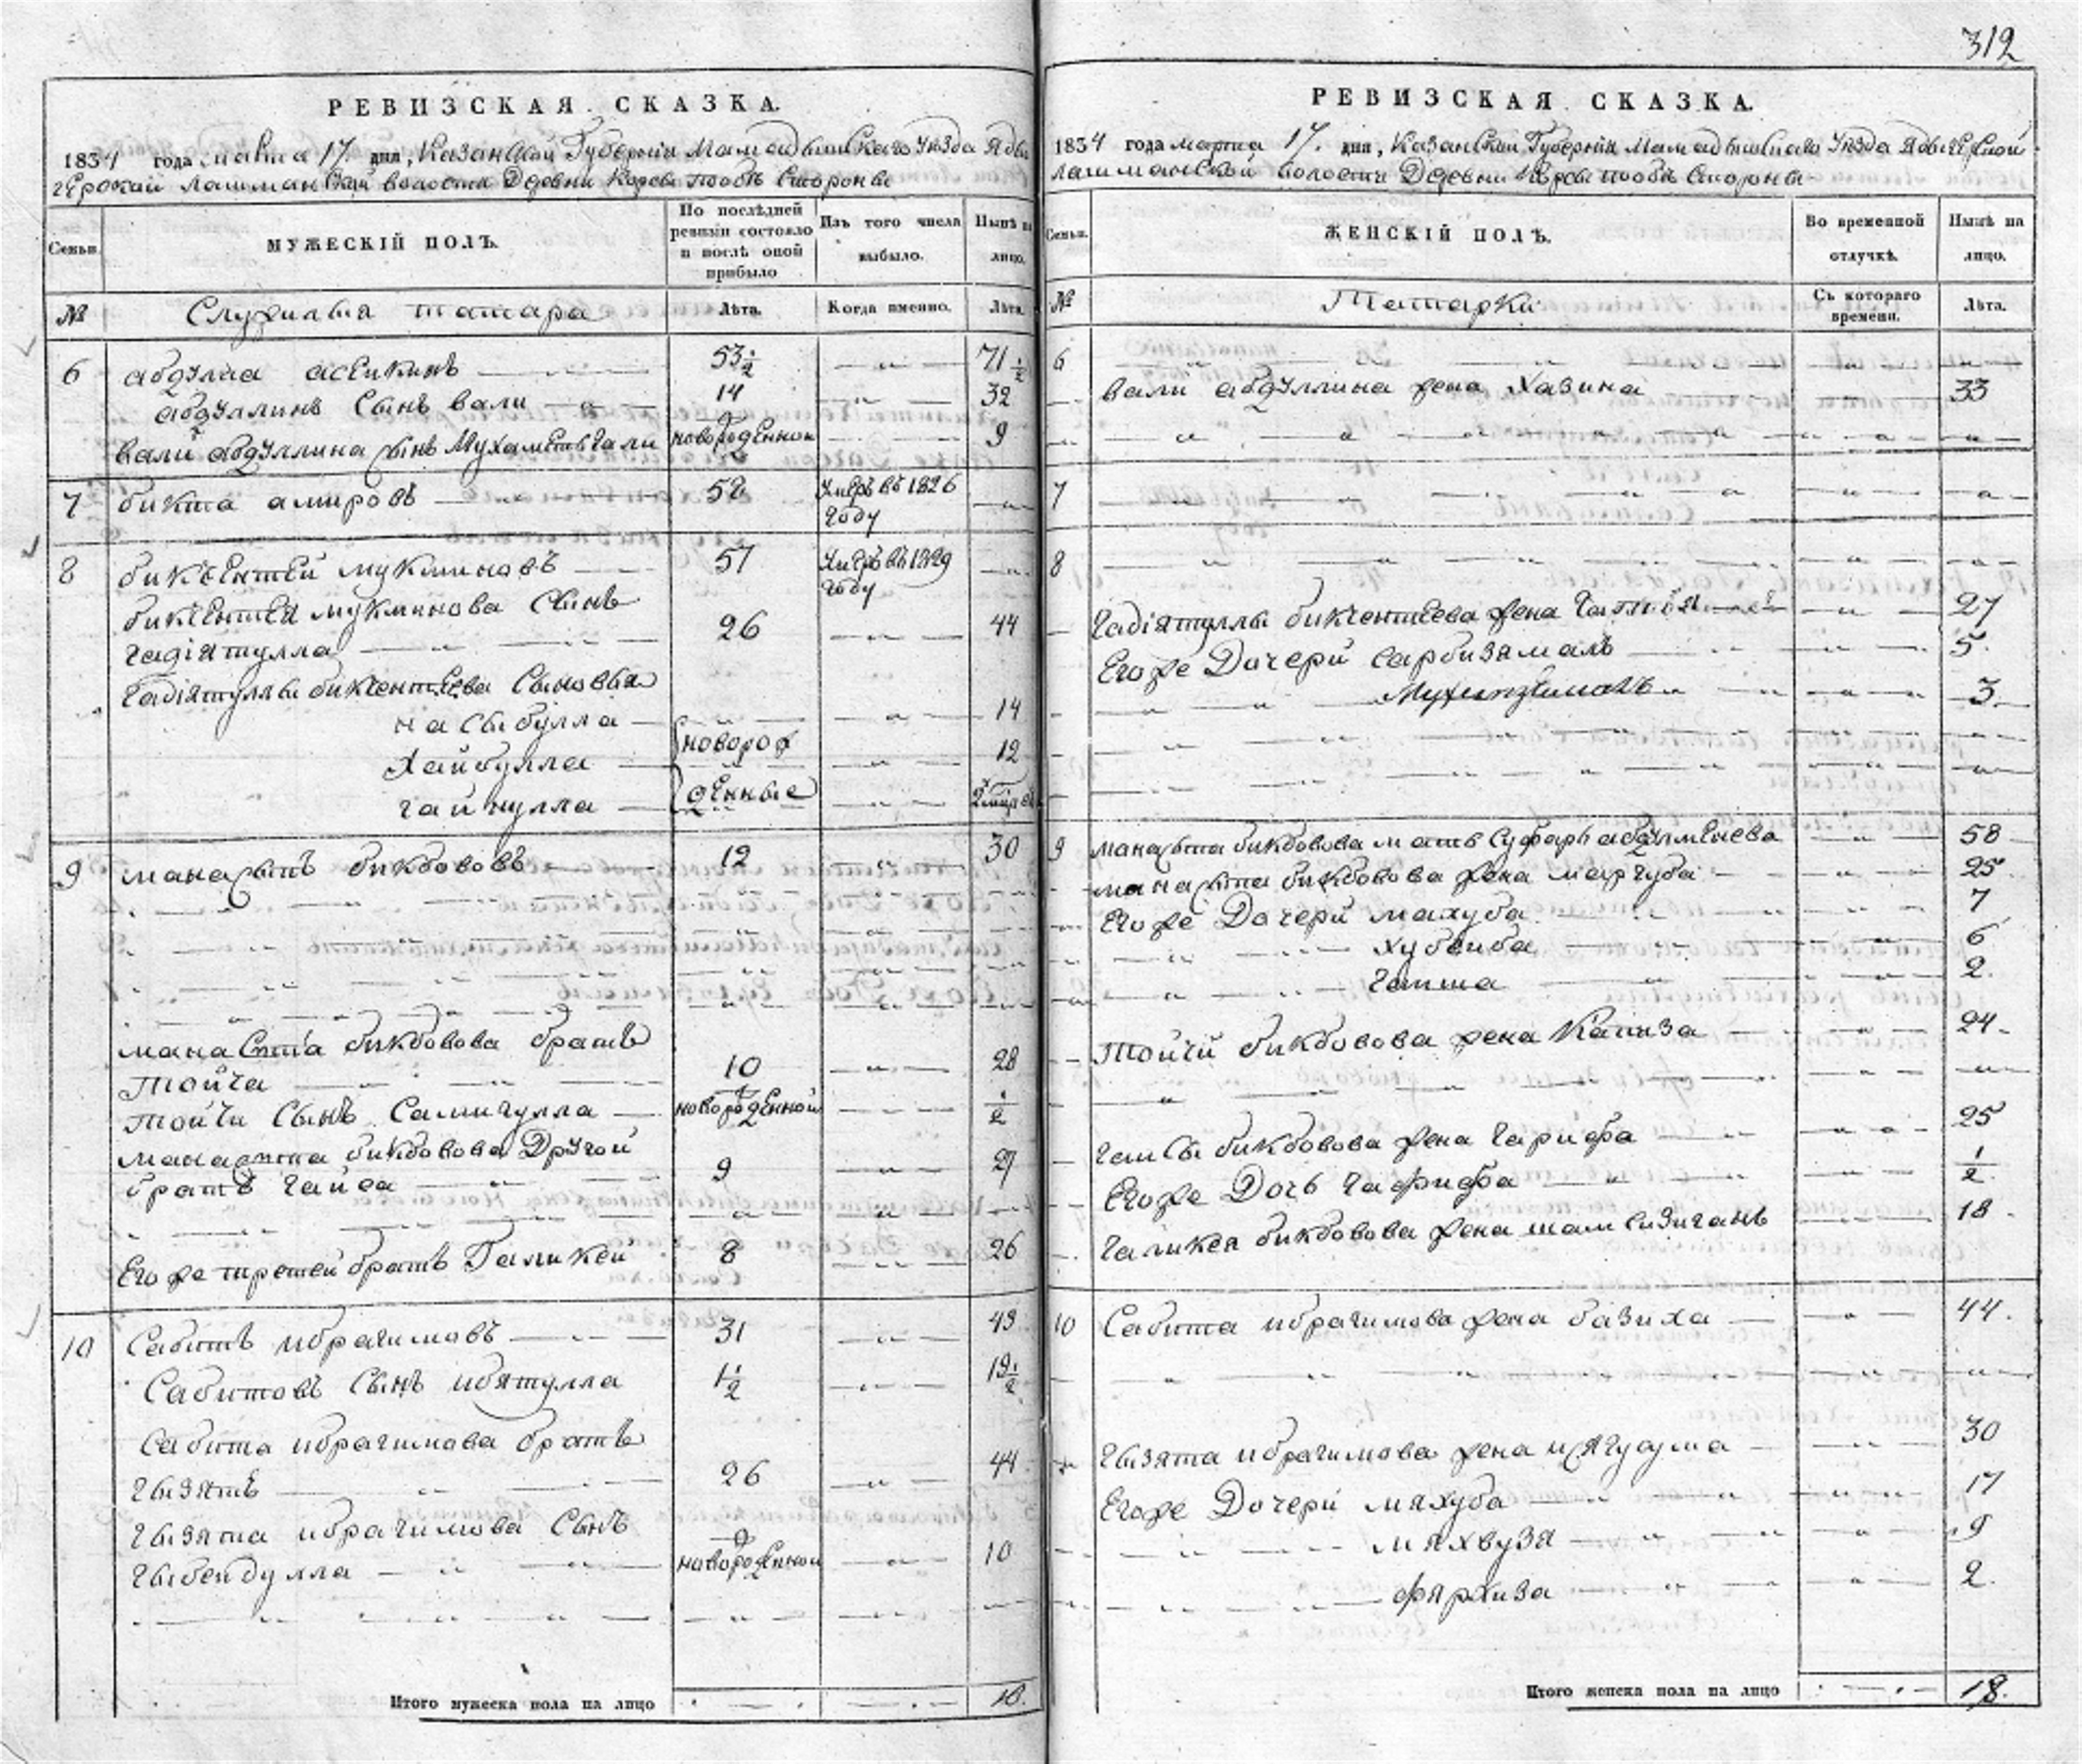 312
РЕВИЗСКАЯ СКАЗКА.
1834 года марта 17. дня, Казанской Губернии Мамадышскаго Уѣзда Ядыгерской Лашманской волости Деревни
МУЖЕСКІЙ ПОЛЪ.
Семьи.
По послѣдней ревизіи состояло и послѣ оной прибыло
Изъ того числа выбыло.
Нынѣ на лицо.
№
Служилыя татара
Лѣта.
Когда именно.
Лѣта.
6 абдулла асеикинъ — 53½ — 71½
абдуллинъ сынъ вали — 14 — 32
вали абдуллина сынъ Мухаметьгали новорожденной — 9
7 бикта амировъ — 52 Умеръ въ 1826 году
8 бикчентей мукминовъ — 57 Умеръ въ 1829 году
бикчентея мукминова сынъ
гадіятулла — 26 — 44
Гадіятуллы бикчентеева сыновья
насыбулла — 14
новорожденные
хайбулла — 12
гайнулла — 2
9 манасыпъ бикбововъ — 12 — 30
манасыпа бикбовова братъ
тойча — 10 — 28
тойчи сынъ Самигулла — новорожденной — ½
манасыпа бикбовова Другой
братъ гайса — 9 — 27
Его же третей братъ Галикей 8 — 26
10 Сабитъ ибрагимовъ — 31 — 49
Сабитовъ сынъ ибятулла 1½ — 19½
Сабита ибрагимова братъ
гызятъ — 26 — 44
гызята ибрагимова сынъ
гыбейдулла — новорожденной — 10
Итого мужеска пола на лицо 18.
РЕВИЗСКАЯ СКАЗКА.
1834 года марта 17. дня, Казанской Губернии Мамадышскаго Уѣзда Ядыгерской
Лашманской волости Деревни
Семьи.
ЖЕНСКІЙ ПОЛЪ.
Во временной отлучкѣ.
Нынѣ на лицо.
№
Татарки
Съ котораго времени.
Лѣта.
6
вали абдуллина жена Хазина — 33
7
8
гадіятуллы бикчентеева жена — 27
Его же Дочери сарбизямалъ — 5.
— 3.
9 манасыпа бикбовова мать Суфарь абдулменева — 58
манасыпа бикбовова жена маргуба — 25.
Его же Дочери махуба — 7
хубяиба — 6
гашша — 2.
тойчи бикбовова жена Капиза — 24.
гайсы бикбовова жена гарифа — 25
Его же Дочь гафифа — ½.
галикея бикбовова жена шамсизиганъ — 18.
10 Сабита ибрагимова жена базиха — 44.
гызята ибрагимова жена — 30
Его же Дочери мяхуба — 17
мяхвузя — 9
фярхиза — 2.
Итого женска пола на лицо 18.